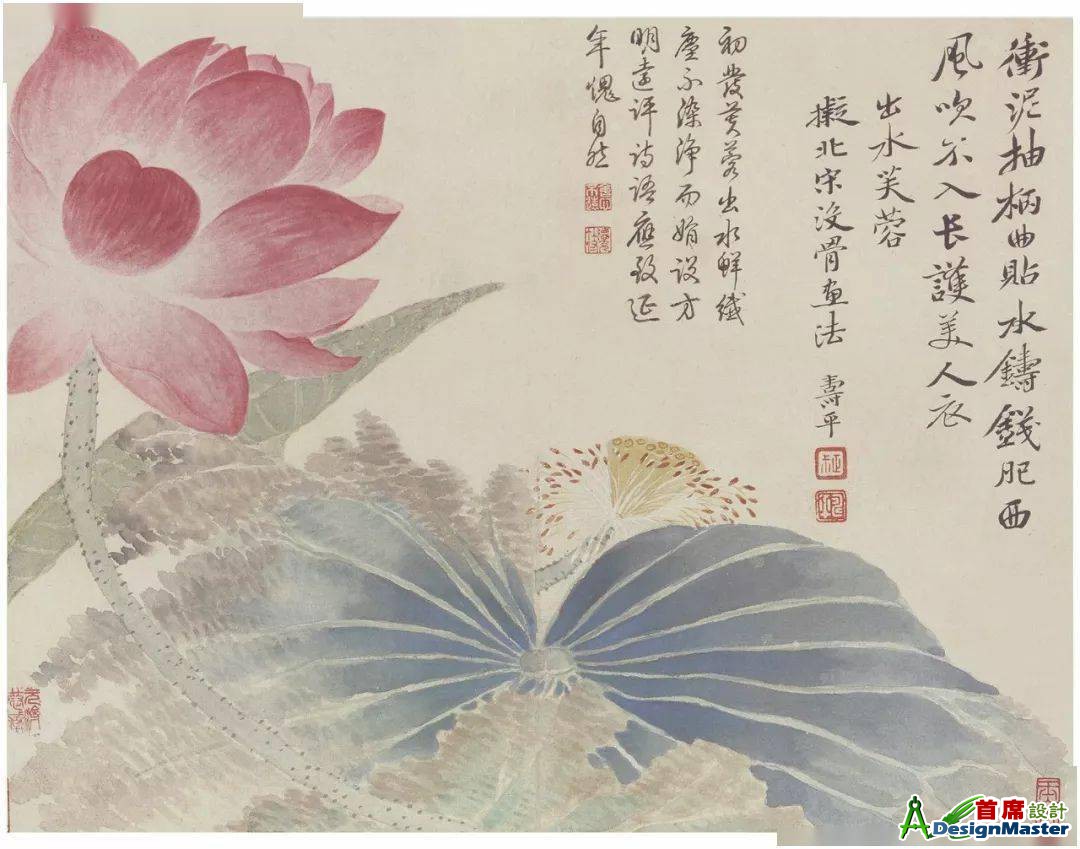 衝泥抽柄曲貼水鑄錢肥西
風吹不入長護美人衣
出水芙蓉
擬北宋没骨畫法 壽平
初發芙蓉出水鮮纖
塵不染淨而娟設方
明遠評詩語應致延
年愧自然
首席設計
DesignMaster